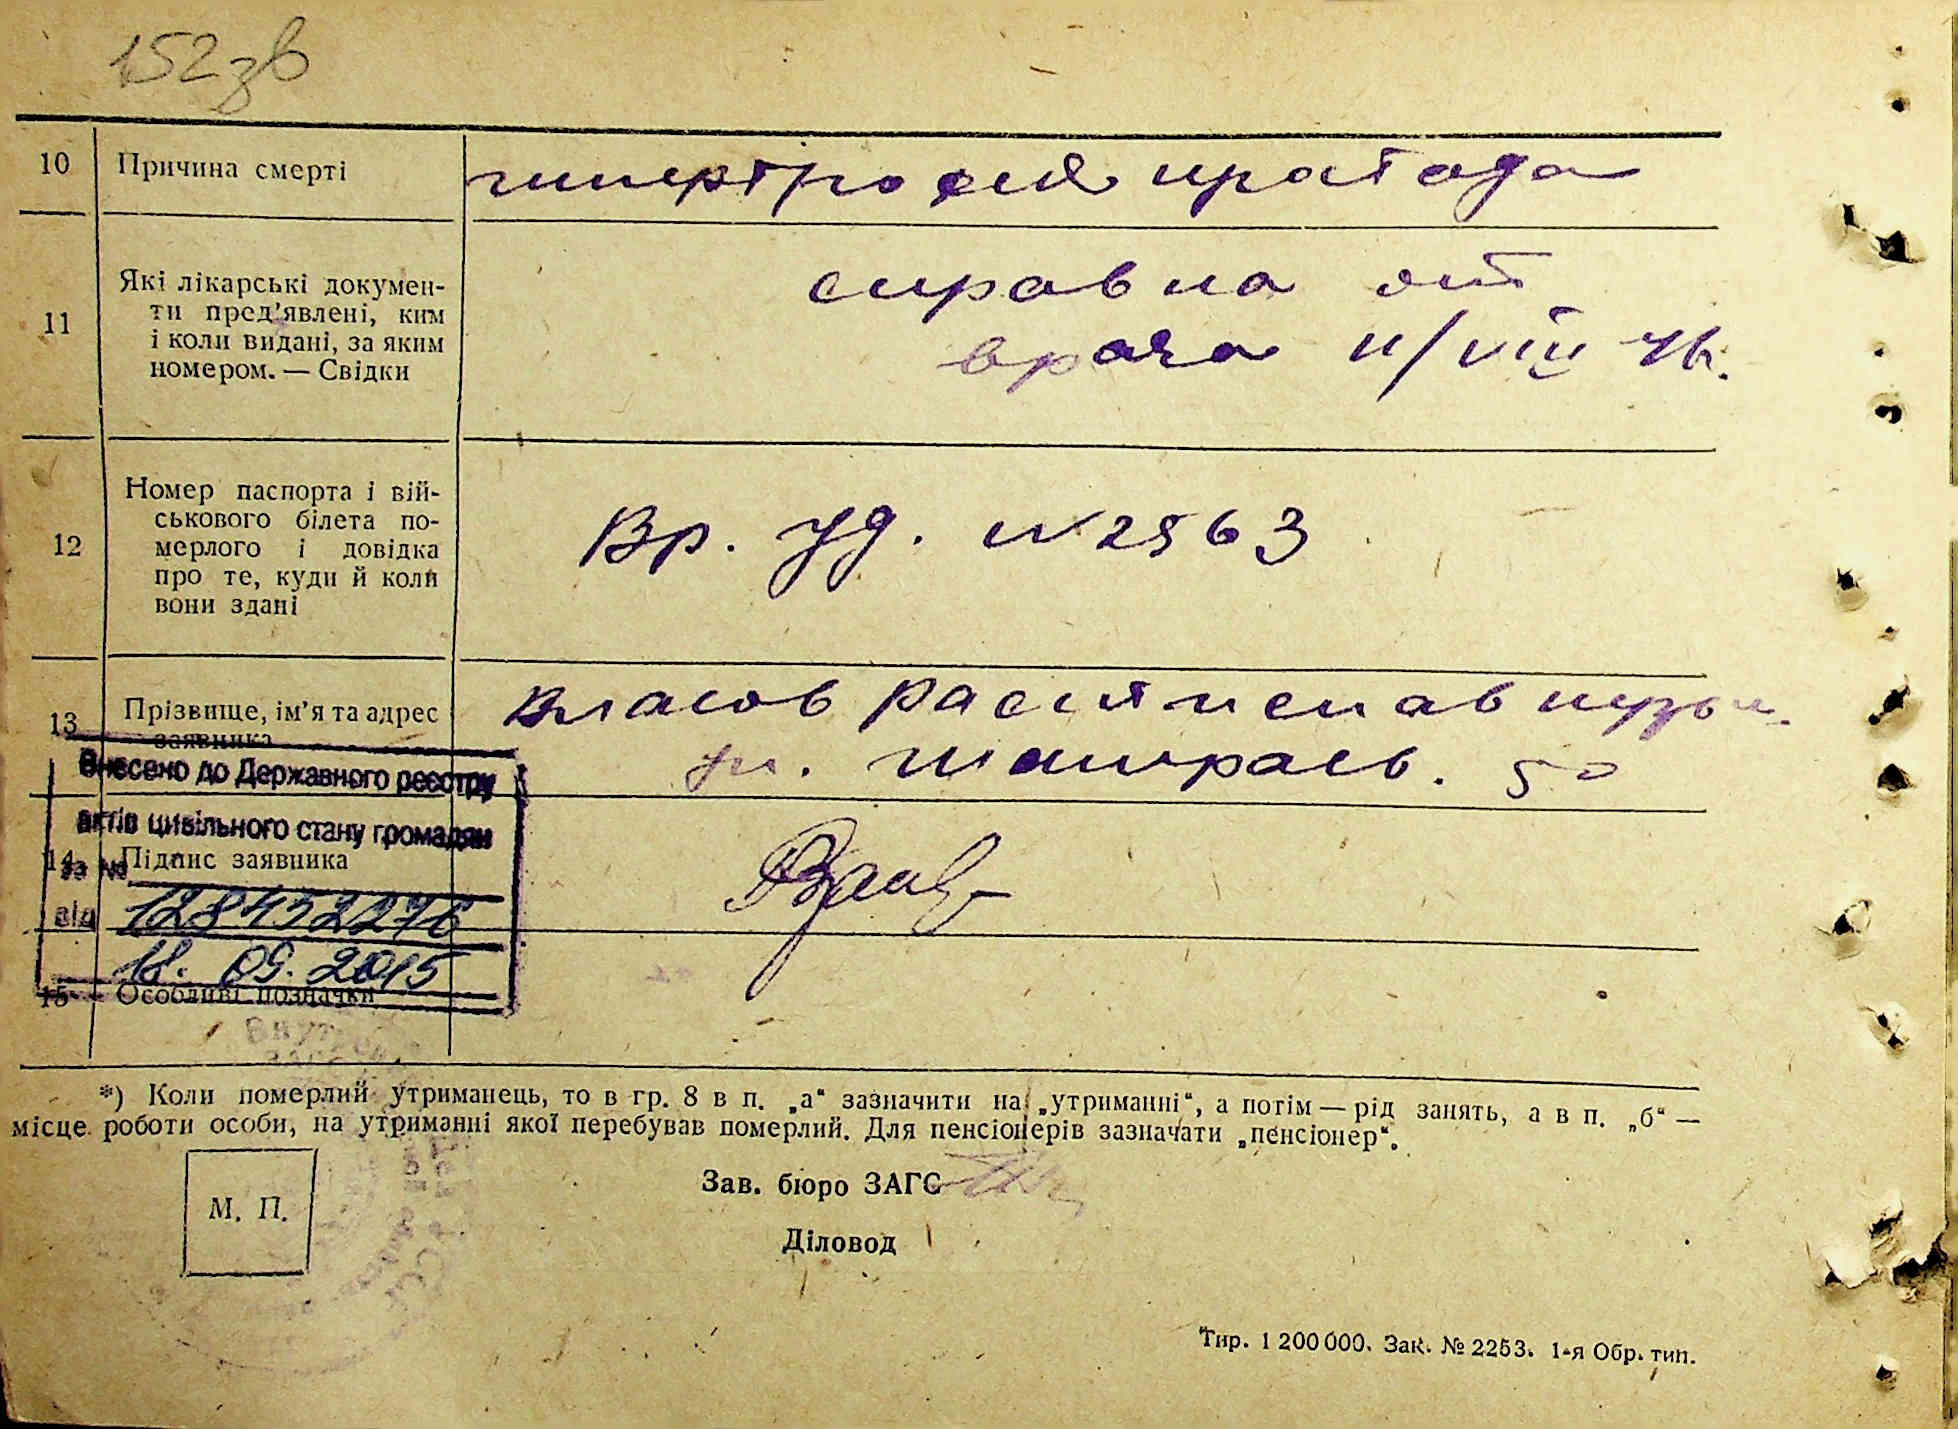 152зв
10 Причина смерті
гипертрофия
11 Які лікарські докумен-
ти пред'явлені, ким
і коли видані, за яким
номером. — Свідки
справка от
врача 11/VIII 46.
12 Номер паспорта і вій-
ськового білета по-
мерлого і довідка
про те, куди й коли
вони здані
Вр. уд. № 2563
13 Прізвище, ім'я та адрес
заявника
Власов
ул. 50
Внесено до Державного реєстру
актів цивільного стану громадян
за №
14 Підпис заявника
від
18. 09. 2015
15 Особливі позначки
*) Коли померлий утриманець, то в гр. 8 в п. „а“ зазначити на „утриманні“, а потім — рід занять, а в п. „б“ —
місце роботи особи, на утриманні якої перебував померлий. Для пенсіонерів зазначати „пенсіонер“.
М. П.
Зав. бюро ЗАГС
Діловод
Тир. 1 200 000. Зак. № 2253. 1-я Обр. тип.